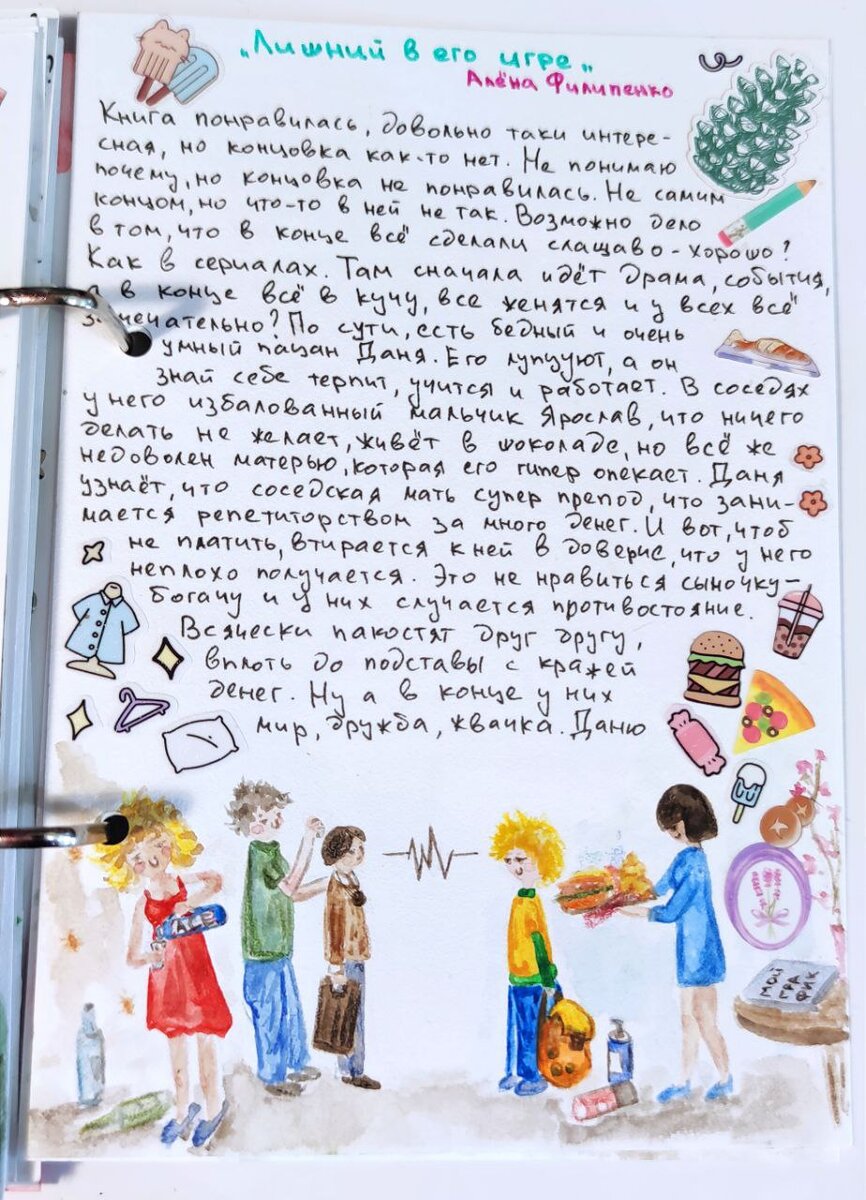 „Лишний в его игре„
Алёна Филипенко
Книга понравилась, довольно таки интере-
сная, но концовка как-то нет. Не понимаю
почему, но концовка не понравилась. Не самим
концом, но что-то в ней не так. Возможно дело
в том, что в конце всё сделали слащаво-хорошо?
Как в сериалах. Там сначала идёт драма, события,
а в конце всё в кучу, все женятся и у всех всё
замечательно? По сути, есть бедный и очень
умный пацан Даня. Его лупцуют, а он
знай себе терпит, учится и работает. В соседях
у него избалованный мальчик Ярослав, что ничего
делать не желает, живёт в шоколаде, но всё же
недоволен матерью, которая его гипер опекает. Даня
узнаёт, что соседская мать супер препод, что зани-
мается репетиторством за много денег. И вот, чтоб
не платить, втирается к ней в доверие, что у него
неплохо получается. Это не нравиться сыночку-
богачу и у них случается противостояние.
Всячески пакостят друг другу,
вплоть до подставы с кражей
денег. Ну а в конце у них
мир, дружба, жвачка. Даню
ALE
МОЙ
ГРА
ФИК